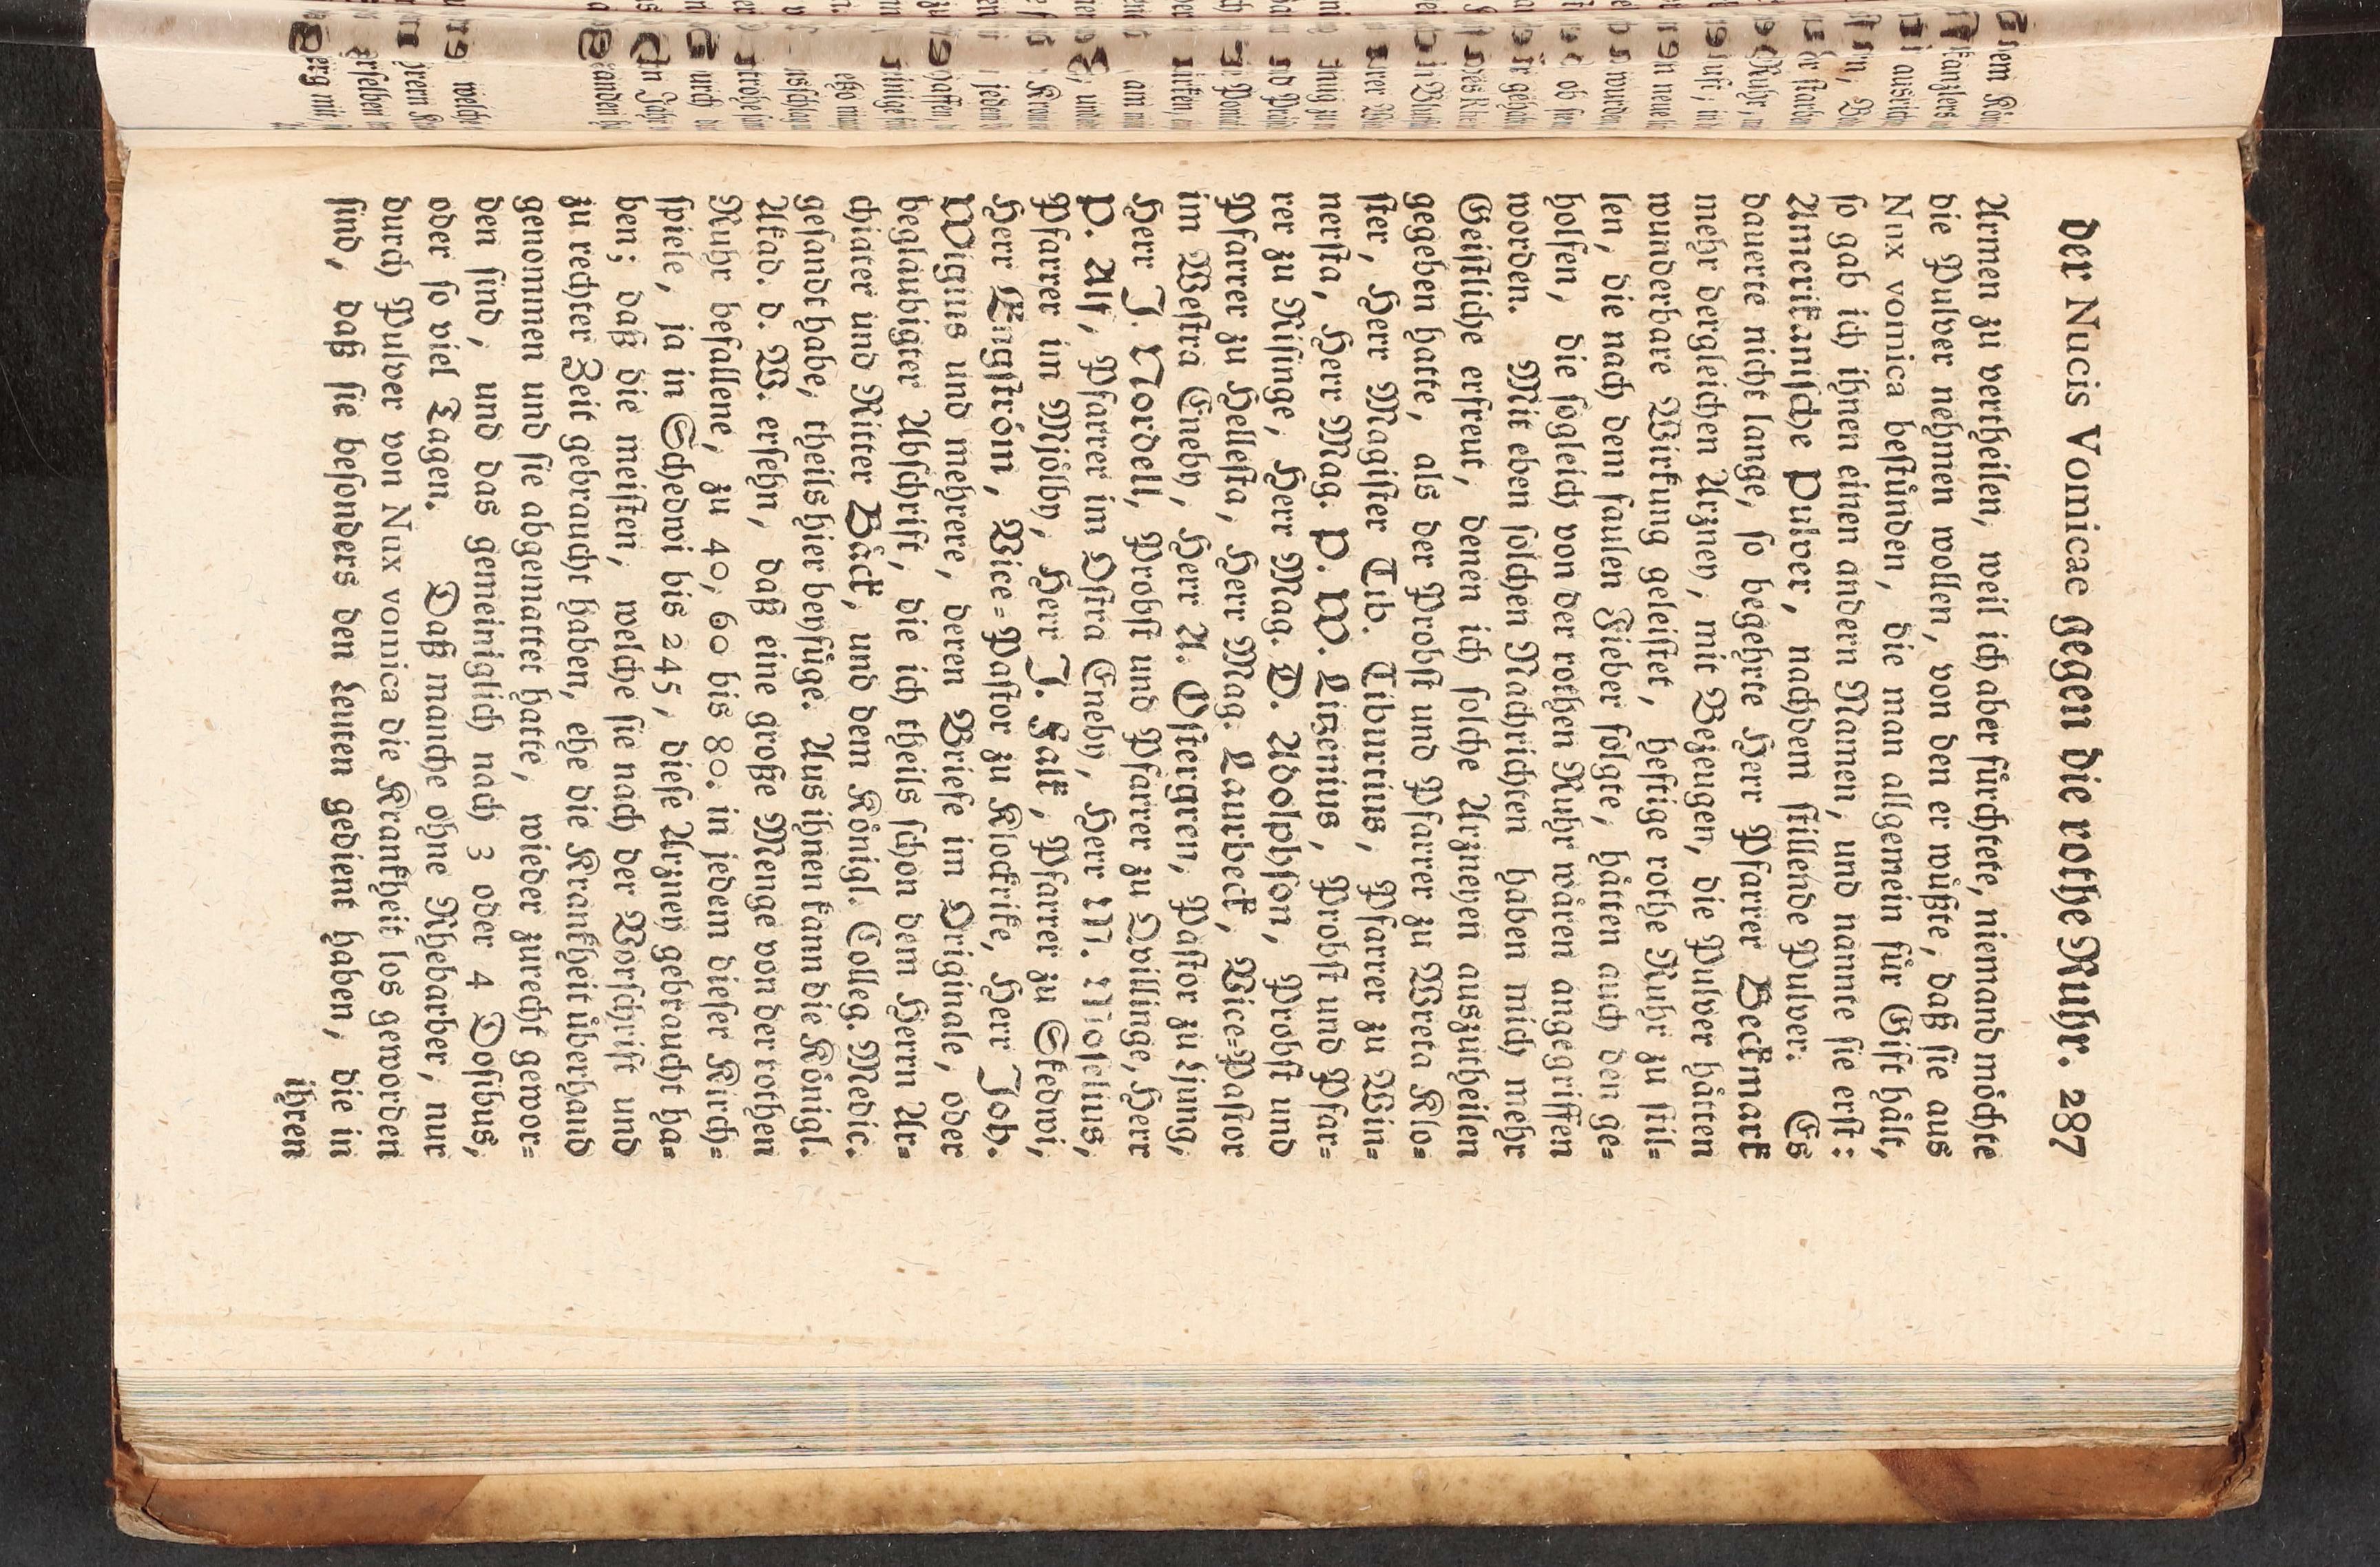 der Nucis Vomicae gegen die rothe Ruhr. 287
Armen zu vertheilen, weil ich aber fürchtete, niemand möchte
die Pulver nehmen wollen, von den er wüßte, daß sie aus
Nux vomica bestünden, die man allgemein für Gift hält,
so gab ich ihnen einen andern Namen, und nannte sie erst:
Amerikanische Pulver, nachdem stillende Pulver. Es
dauerte nicht lange, so begehrte Herr Pfarrer Beckmark
mehr dergleichen Arzney, mit Bezeugen, die Pulver hätten
wunderbare Wirkung geleistet, heftige rothe Ruhr zu stil=
len, die nach dem faulen Fieber folgte, hätten auch den ge=
holfen, die sogleich von der rothen Ruhr wären angegriffen
worden. Mit eben solchen Nachrichten haben mich mehr
Geistliche erfreut, denen ich solche Arzneyen auszutheilen
gegeben hatte, als der Probst und Pfarrer zu Wreta Klo=
ster, Herr Magister Tib. Tiburtius, Pfarrer zu Win=
nersta, Herr Mag. P. W. Lizemius, Probst und Pfar=
rer zu Risinge, Herr Mag. D. Adolphson, Probst und
Pfarrer zu Hellesta, Herr Mag. Laurbeck, Vice=Pastor
im Westra Eneby, Herr A. Östergren, Pastor zu Ljung,
Herr J. Nordell, Probst und Pfarrer zu Qvillinge, Herr
P. Alf, Pfarrer im Ostra Eneby, Herr M. Moselius,
Pfarrer in Mjölby, Herr J. Falk, Pfarrer zu Stedwi,
Herr Engström, Vice=Pastor zu Klockrike, Herr Joh.
Wigius und mehrere, deren Briefe im Originale, oder
beglaubigter Abschrift, die ich theils schon dem Herrn Ar=
chiater und Ritter Bäck, und dem Königl. Colleg. Medic.
gesandt habe, theils hier beyfüge. Aus ihnen kann die Königl.
Akad. d. W. ersehn, daß eine große Menge von der rothen
Ruhr befallene, zu 40, 60 bis 80. in jedem dieser Kirch=
spiele, ja in Schedwi bis 245, diese Arzney gebraucht ha=
ben; daß die meisten, welche sie nach der Vorschrift und
zu rechter Zeit gebraucht haben, ehe die Krankheit überhand
genommen und sie abgemattet hatte, wieder zurecht gewor=
den sind, und das gemeiniglich nach 3 oder 4 Dosibus,
oder so viel Tagen. Daß manche ohne Rhebarber, nur
durch Pulver von Nux vomica die Krankheit los geworden
sind, daß sie besonders den Leuten gedient haben, die in
ihren